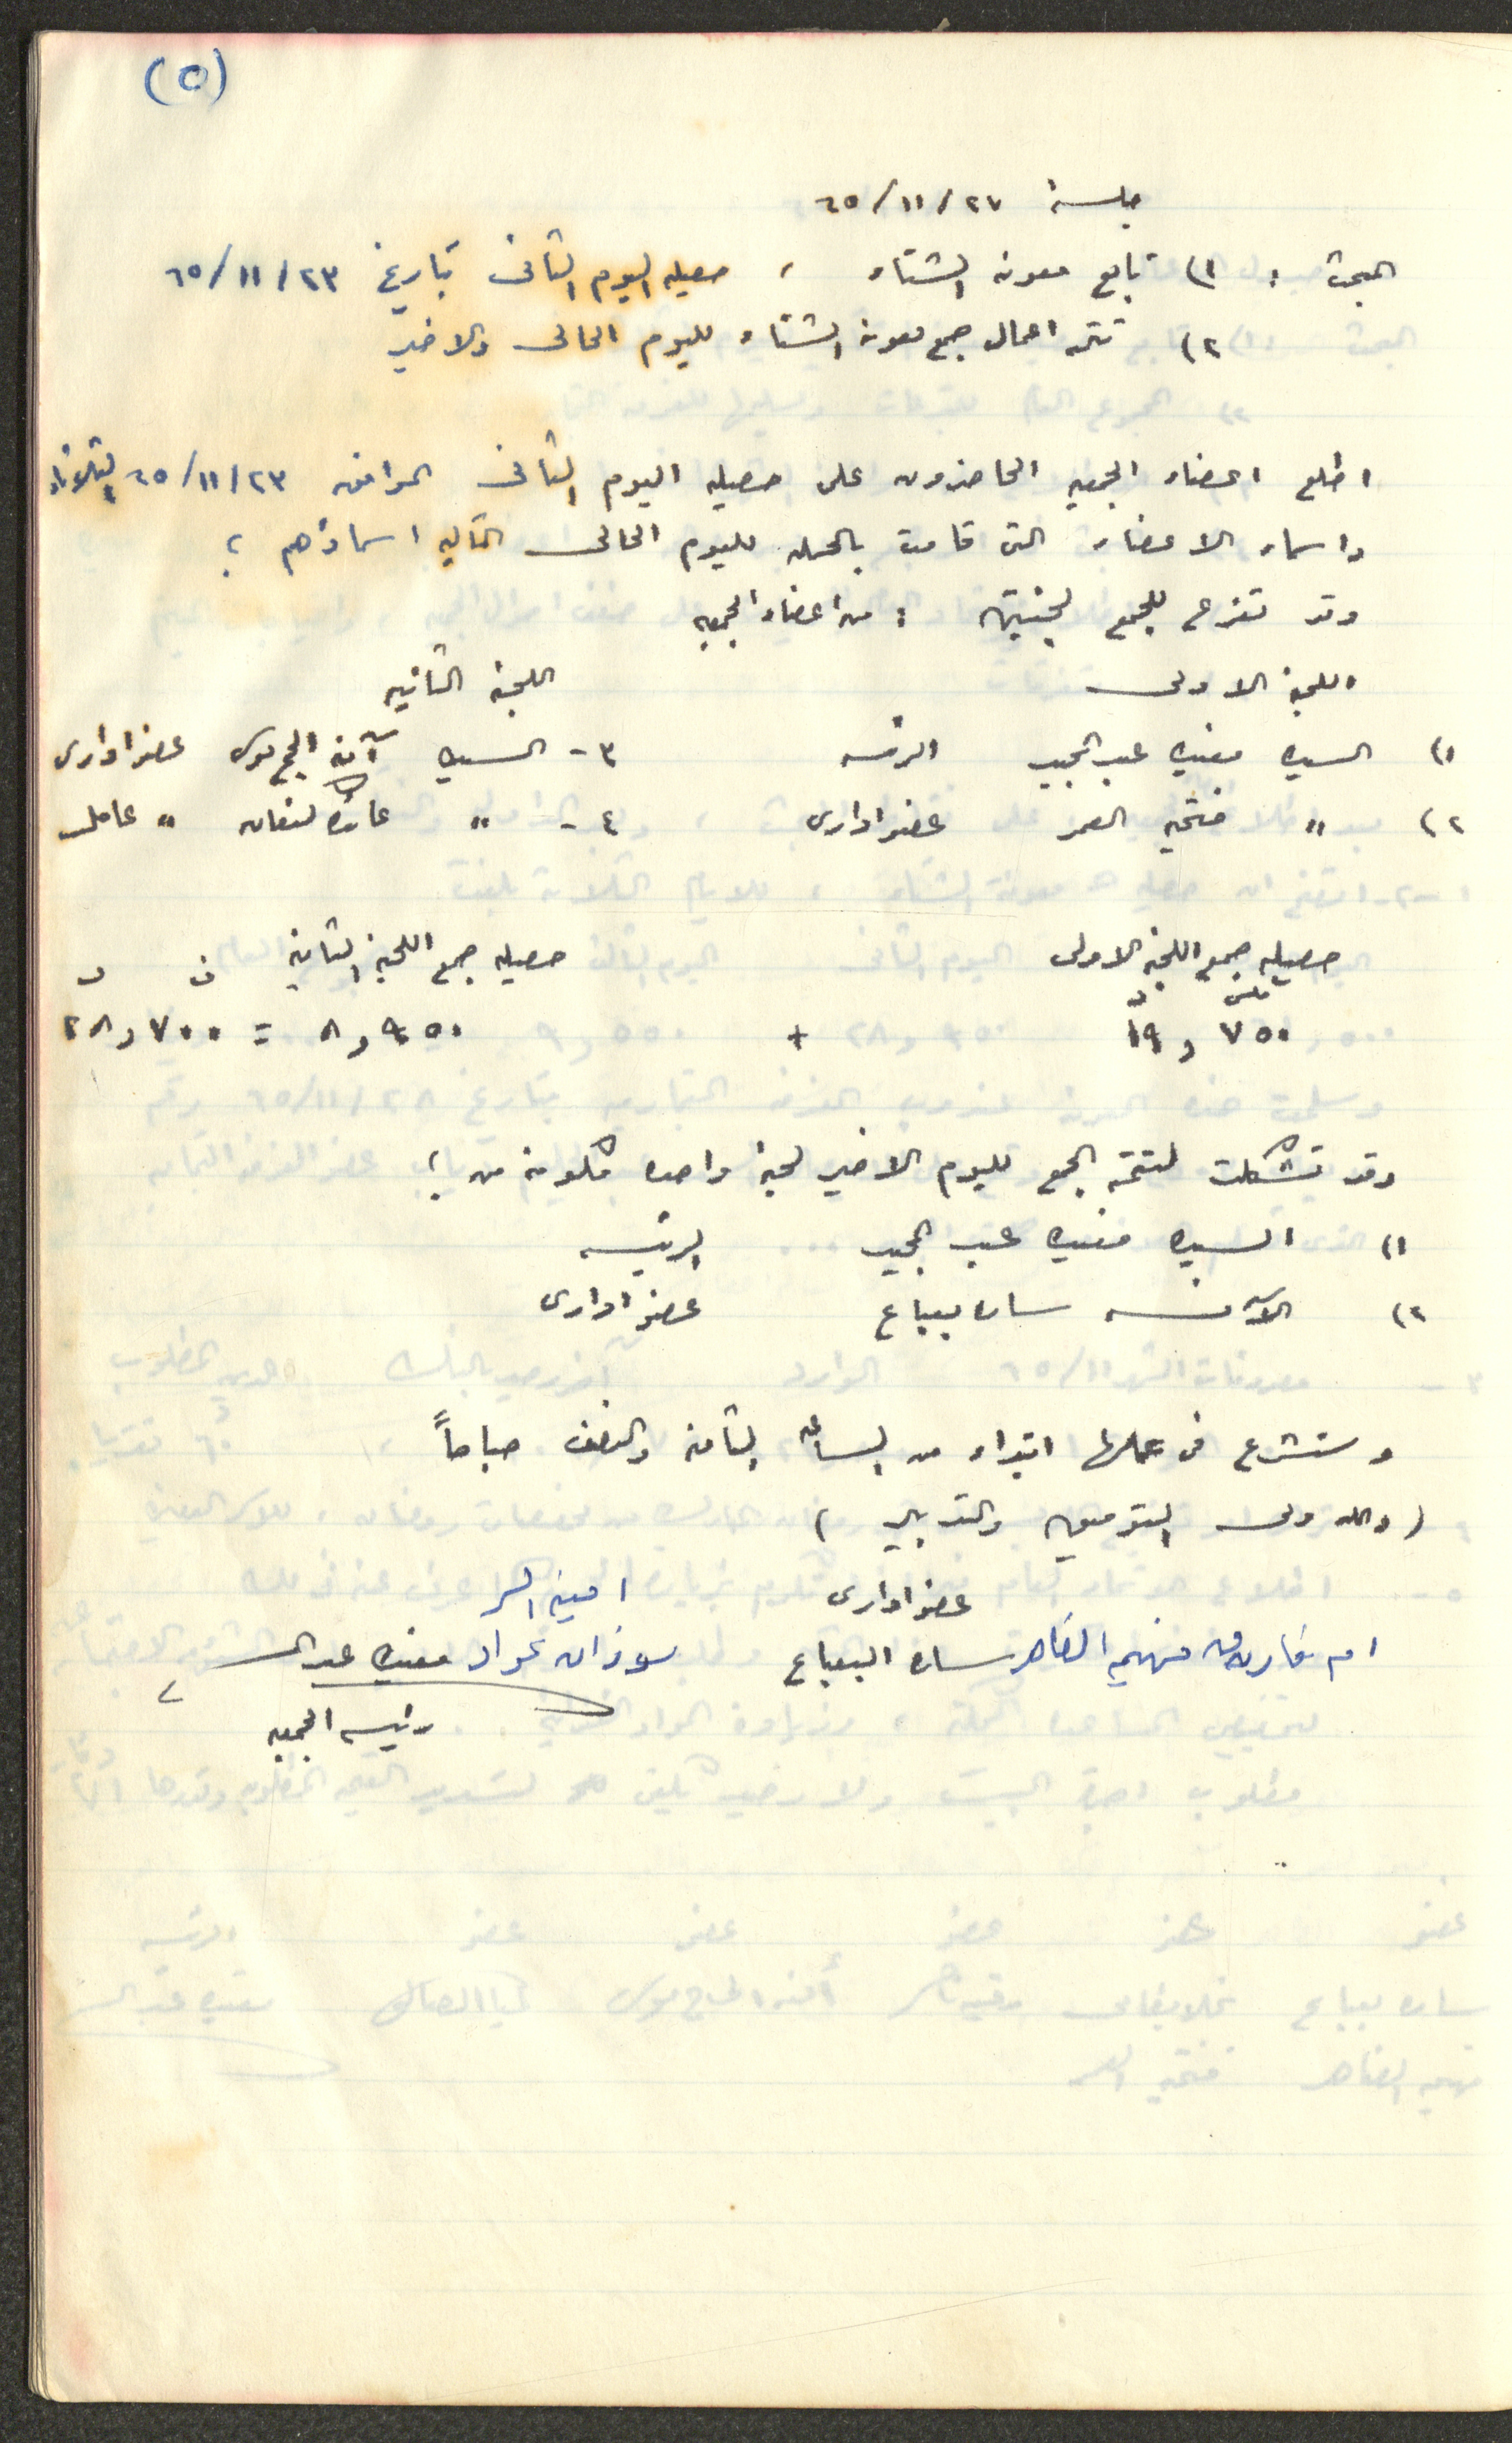 (٥)
جلسة ٢٧/١١/٦٥
البحث : ١) تابع معونة الشتاء ، حصيله اليوم الثاني بتاريخ ٢٣/١١/٦٥
٢) تتمه اعمال جمع معونة الشتاء لليوم الحالى والاخير
اطلع اعضاء الجمعيه الحاضرون على حصيله اليوم الثاني الموافق ٢٣/١١/٦٥ الثلاثاء
واسماء الاعضاء التى قامت بالحمله لليوم الحالى التاليه اسماؤهم ؛
وقد تفرع للجمع لجنتين : من اعضاء الجمعيه
اللجنة الاولى اللجنة الثانيه
١) السيده مفيده عبد المجيد الرئيسه ٣ - السيده آمنه الحج موسى عضو ادارى
٢) " فتحيه العمر عضو ادارى ٤ - " عائده لنفان " عامل
حصيله جمع اللجنة الاولى حصيله جمع اللجنة الثانيه ف د
فلس د
٧٥٠ و ١٩ + ٩٥٠ و ٨ = ٧٠٠ و ٢٨
وقد تشكلت لتتمة الجمع لليوم الاخير لجنة واحده مكونة من ؛
١) السيده مفيده عبد المجيد الرئيسه
٢) الآنسه ساره بعباع عضو ادارى
وستشرع فى عملها ابتداء من الساعه الثامنه والنصف صباحاً
( والله ولى التوفيق والتدبير )
عضو ادارى امينه السر
ام فاروق فهيمه الضاهر ساره البعباع سوزان عواد مفيده عبد المجيد
رئيسه الجمعيه